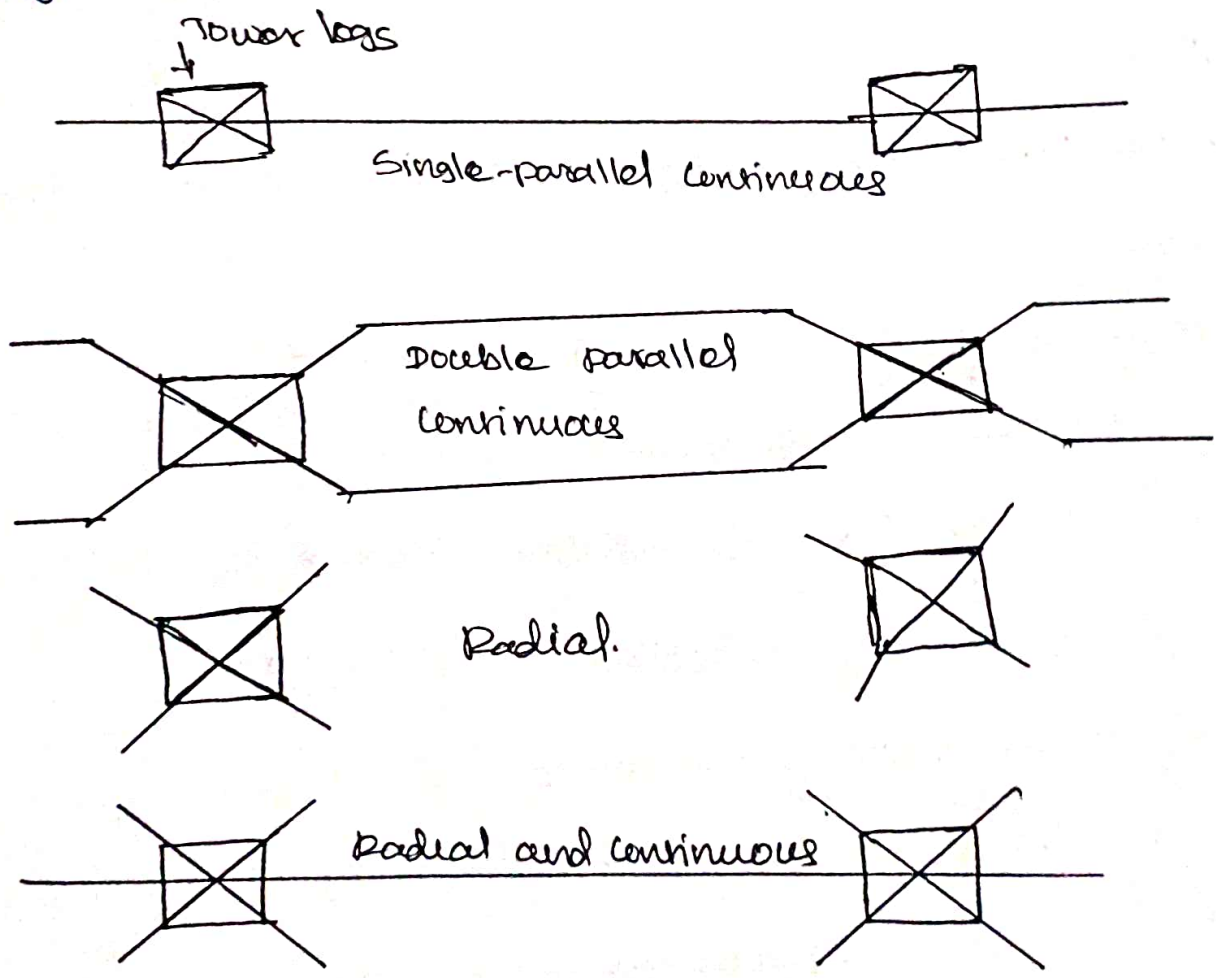 Tower legs
Single-parallel continuous
Double parallel
continuous
Radial.
Radial and continuous